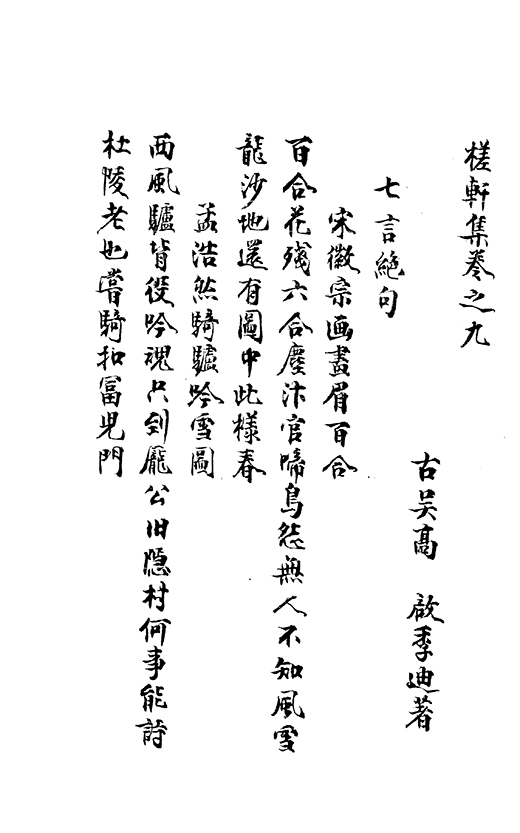 槎軒集卷之九
古吴高 啟季迪著
七言絶句
宋徽宗画畫眉百合
百合花殘六合塵汴宫啼鳥怨無人不知風雪
龍沙地還有圖中此様春
孟浩然騎驢吟雪圖
西風驢背役吟魂只到龐公旧隐村何事能詩
杜陵老也嘗騎扣冨児門